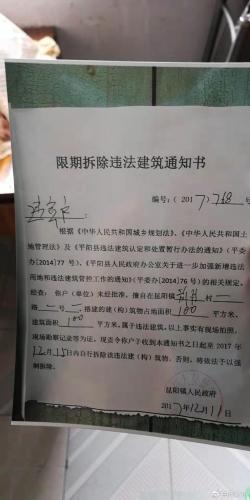 限期拆除违法建筑通知书
编号：（2017）768 号
：
根据《中华人民共和国城乡规划法》、《中华人民共和国土
地管理法》及《平阳县违法建筑认定和处置暂行办法的通知》（平委
办[2014]77 号）、《平阳县人民政府办公室关于进一步加强新增违法
用地和违法建筑管控工作的通知》（平委办[2014]76 号）的相关规定，
经查：你户（单位）未经批准，擅自在昆阳镇 村
路 号，搭建的建（构）筑物占地面积 160 平方米，
建筑面积 160 平方米，属于违法建筑。以上事实有现场拍照、
现场勘察记录等为证。现责令你户于收到本通知书之日起至 2017 年
12月15日内自行拆除该违法建（构）筑物。否则，将依法予以强
制拆除。
昆阳镇人民政府
2017年12月11日